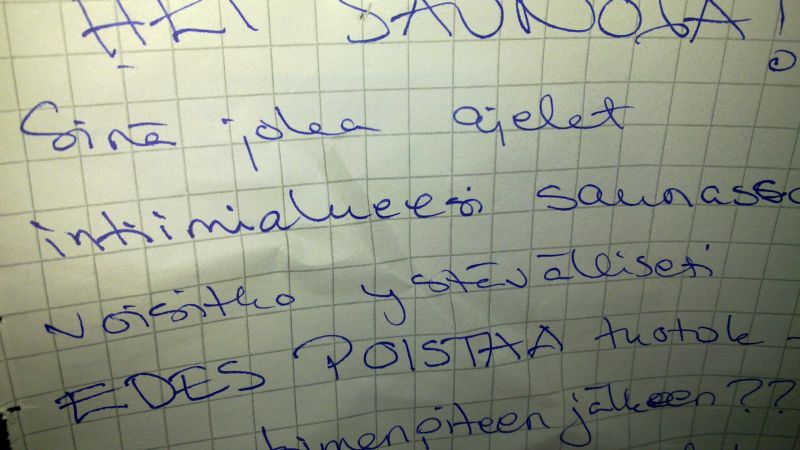 HEI SAUNOJA!
Sinä joka ajelet
intiimialueesi saunassa
voisitko ystävälliseti
EDES POISTAA tuotok-
toimenpiteen jälkeen??